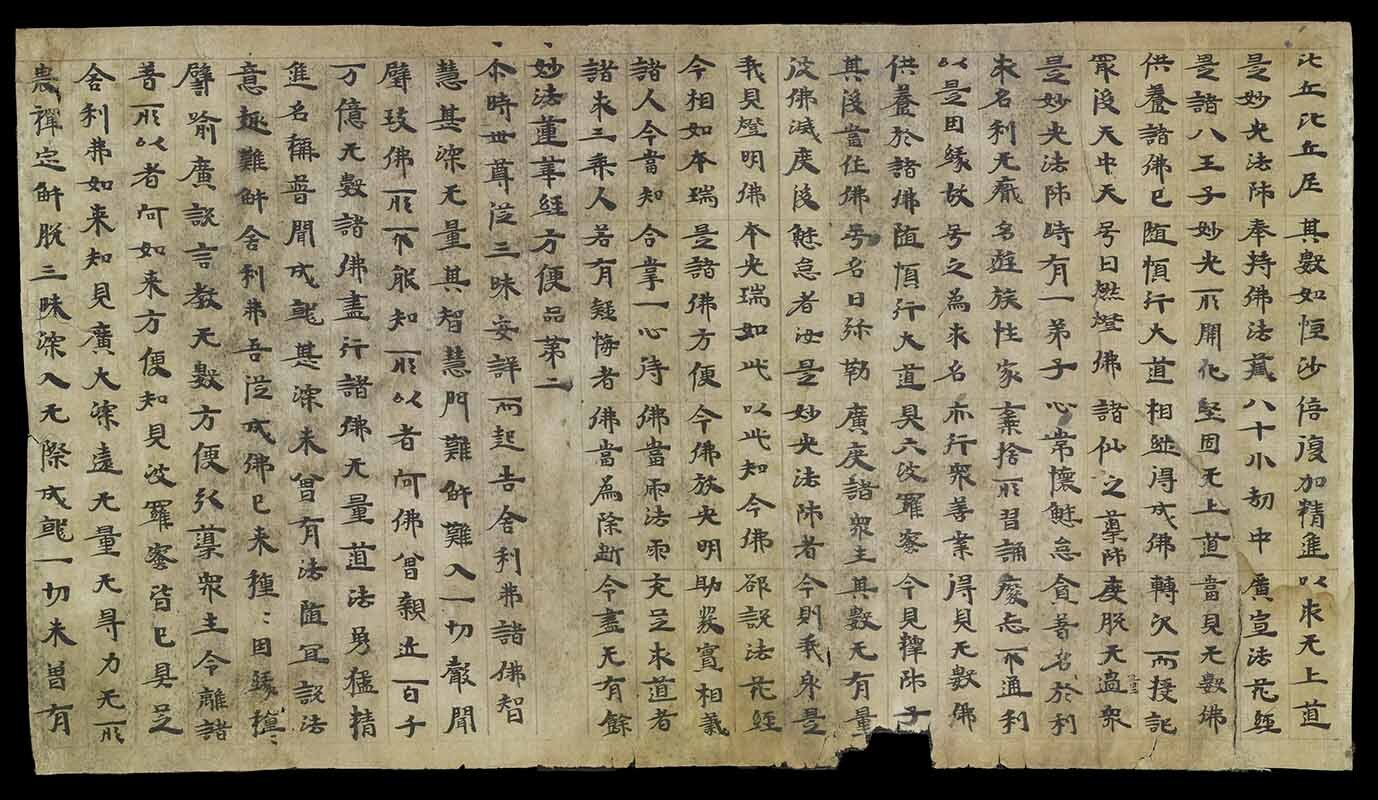 比丘比丘尼 其數如恒沙 倍復加精進 以求无上道
是妙光法師 奉持佛法藏 八十小劫中 廣宣法花經
是諸八王子 妙光所開化 堅固无上道 當見无數佛
供養諸佛已 随順行大道 相継得成佛 轉次而授記
眾後天中天 号曰燃燈佛 諸仙之導師 度脫无量衆
是妙光法師 時有一弟子 心常懷懈怠 貪著名於利
求名利无猒 名遊族性家 棄捨所習誦 癈忘不通利
以是因縁故 号之為求名 亦行衆善業 得見无數佛
供養於諸佛 随順行大道 具六波羅蜜 今見釋師子
其後當作佛 号名曰弥勒 廣度諸衆生 其數无有量
彼佛滅度後 懈怠者汝是 妙光法師者 今則我身是
我見燈明佛 本光瑞如此 以此知今佛 欲說法花經
今相如本瑞 是諸佛方便 今佛放光明 助發實相義
諸人今當知 合掌一心待 佛當雨法雨 充足求道者
諸求三乘人 若有疑悔者 佛當為除断 令盡无有餘
妙法蓮華經方便品第二
尒時世尊從三昧安詳而起告舍利弗諸佛智
慧甚深无量其智慧門難解難入一切聲聞
辟支佛所不能知所以者何佛曾親近百千
万億无數諸佛盡行諸佛无量道法勇猛精
進名稱普聞成就甚深未曾有法随冝說法
意趣難解舍利弗吾從成佛已来種〻因縁種〻
譬喻廣說言教无數方便引導衆生令離諸
著所以者何如来方便知見波羅蜜皆已具足
舍利弗如来知見廣大深遠无量无㝵力无所
畏禪定解脫三昧深入无際成就一切未曾有